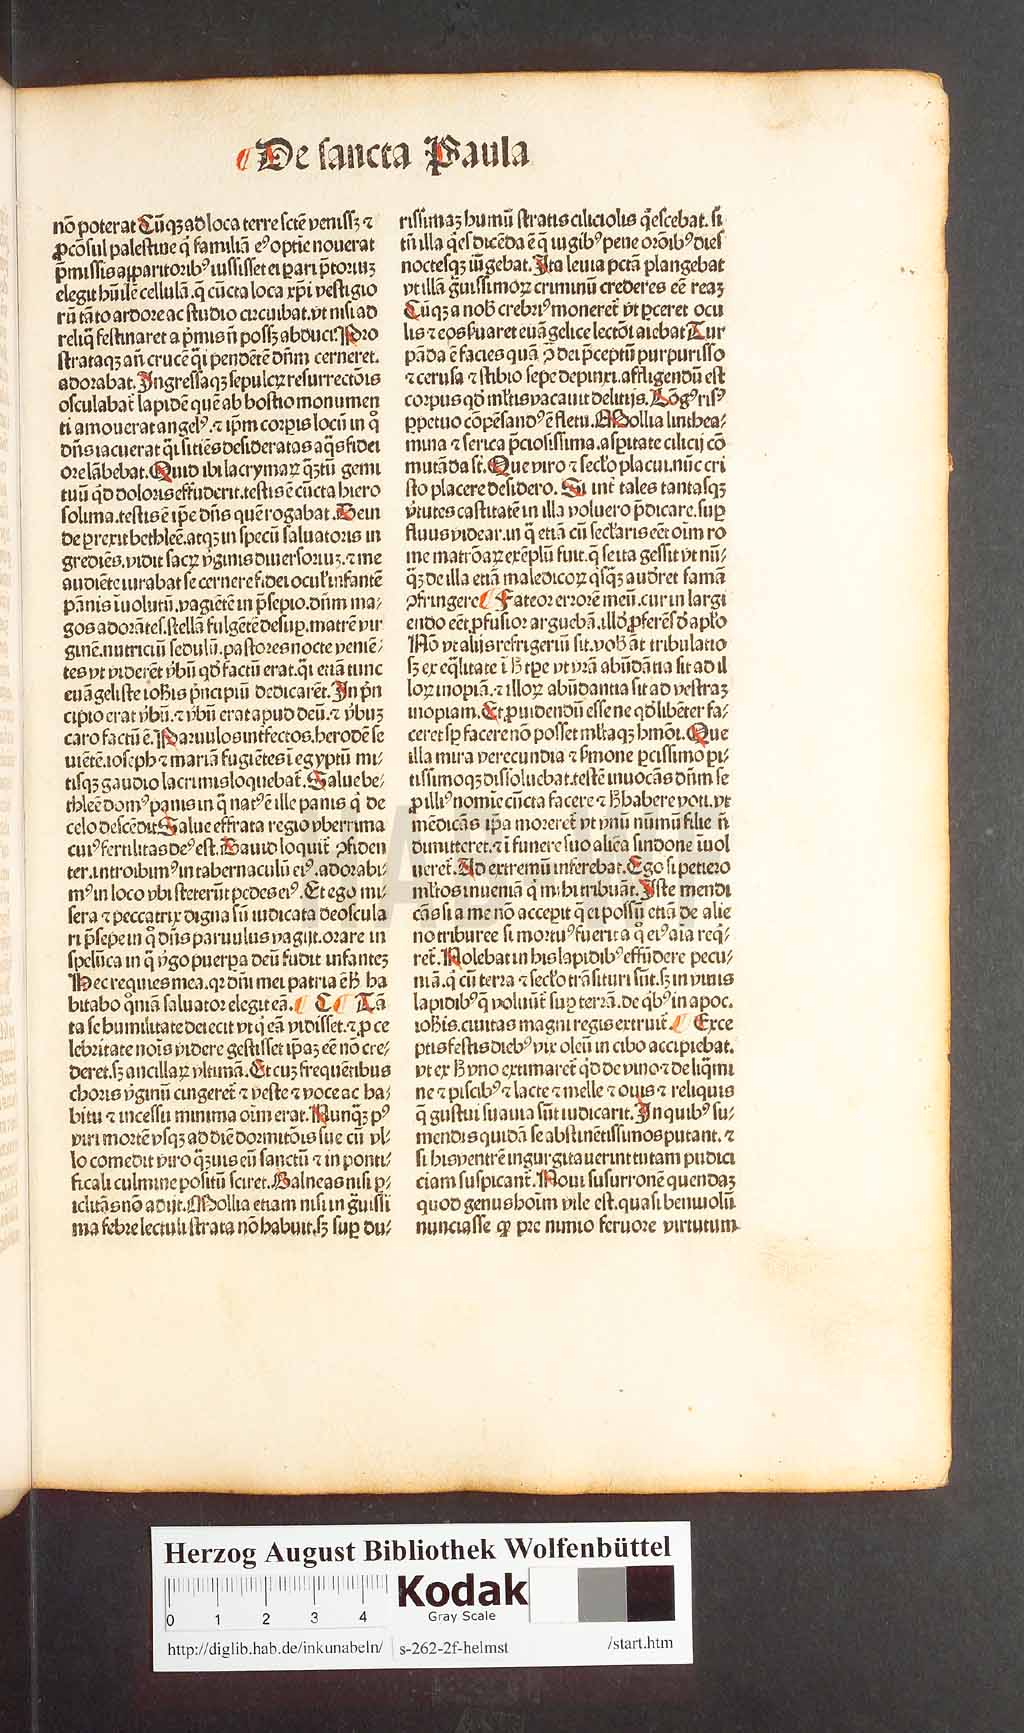 De sancta Paula
nō poterat Cūqꝫ ad loca terre sctē venissꝫ ⁊
ꝓcōsul palestine q̄ familiā eꝰ optīe nouerat
p̄missis apparitoribꝰ iussisset ei pari p̄toriuꝫ
elegit hūilē cellulā. q̄ cūcta loca xp̄i vestigio
rū tāto ardore ac studio circuibat. vt nisi ad
reliq̄ festinaret a p̄mis n̄ possꝫ abduci. Pro
strataqꝫ an̄ crucē q̄si pendētē dn̄m cerneret.
adorabat. Ingressaqꝫ sepulcꝝ resurrectōis
osculabat̄ lapidē quē ab hostio monumen
ti amouerat angelꝰ. ⁊ ip̄m corpis locū in q̊
dn̄s iacuerat q̄si sitiēs desideratas aq̄s fidei
ore lābebat. Quid ibi lacrymaꝝ q̄ꝫtū gemi
tuū qd̄ doloris effuderit. testis ē cūcta hiero
solima. testis ē ip̄e dn̄s quē rogabat. Dein
de prexit bethleē. atqꝫ in specū saluatoris in
grediēs. vidit sacꝝ v̄ginis diuersoriuꝫ. ⁊ me
audiēte iurabat se cernere fidei ocul̓ infantē
pānis iuolutū. vagiētē in p̄sepio. dn̄m ma⸗
gos adorātes. stellā fulgētē desuꝑ. matrē vir
ginē. nutriciū sedulū. pastores nocte veniē⸗
tes vt viderēt v̄bū qd̄ factū erat. q̄si etiā tunc
euāgeliste iohīs p̄ncipiū dedicarēt. In p̄n
cipio erat v̄bū. ⁊ v̄bū erat apud deū. ⁊ v̄buꝫ
caro factū ē. Paruulos intfectos. herodē se
uiētē. ioseph ⁊ mariā fugiētes ī egyptū mi⸗
tisqꝫ gaudio lacrimis loquebat̄. Salue be⸗
thleē domꝰ panis in q̄ natꝰ ē ille panis q̄ de
celo descēdit Salue effrata regio vberrima
cuiꝰ fertilitas deꝰ est. Dauid loquit̄ ꝯfiden
ter. introibimꝰ in tabernaculū eiꝰ. adorabi⸗
mꝰ in loco vbi steterūt pedes eiꝰ. Et ego mi⸗
sera ⁊ peccatrix digna sū iudicata deoscula
ri p̄sepe in q̊ dn̄s paruulus vagijt. orare in
spelūca in q̄ v̄go puerpa deū fudit infanteꝫ
Hec requies mea. qꝛ dn̄i mei patria ē hᷓ ha
bitabo qm̄iā saluator elegit eā. C Tā
ta se humilitate deiecit vt q̄ eā vidisset. ⁊ ꝓ ce
lebritate noīs videre gestisset ip̄aꝫ eē nō cre⸗
deret. sꝫ ancillaꝝ vltimā. Et cuꝫ frequētibus
choris v̄ginū cingeret̄ ⁊ veste ⁊ voce ac ha⸗
bitu ⁊ incessu minima oīm erat. Nunq̄ꝫ pꝰ
viri mortē vsqꝫ ad diē dormitōis sue cū vl⸗
lo comedit viro q̄ꝫuis eū sanctū ⁊ in ponti⸗
ficali culmine positū sciret. Balneas nisi p̲⸗
iclitās nō adijt. Mollia etiam nisi in g̊uissi⸗
ma febre lectuli strata nō habuit. sꝫ suꝑ du⸗
rissimaꝫ humū stratis ciliciolis q̄escebat. si
tn̄ illa q̄es dicēda ē q̄ iugibꝰ pene orōibꝰ dies
noctesqꝫ iūgebat. Ita leuia pctā plangebat
vt illā g̊uissimoꝝ criminū crederes eē reaꝫ
Cūqꝫ a nob̄ crebriꝰ moneret̄ vt ꝑceret ocu
lis ⁊ eos s̓uaret euāgelice lectōi aiebat Tur
pāda ē facies quā ꝯ̄ dei p̄ceptū purpurisso
⁊ cerusa ⁊ stibio sepe depinxi. affligendū est
corpus qd̄ ml̓tis vacauit delitijs. Lōgꝰ risꝰ
ꝑpetuo cōpēsandꝰ ē fletu. Mollia linthea⸗
mina ⁊ serica p̄ciosissima. asperitate cilicij cō
mutāda st̄. Que viro ⁊ secl̓o placui. nūc cri
sto placere desidero. Si int̄ tales tantasqꝫ
v̓tutes castitatē in illa voluero p̄dicare. suꝑ
fluus videar. in q̄ etiā cū secl̓aris eēt oīm ro
me matronaꝝ exēplū fuit. q̄ se ita gessit vt nū⸗
q̄ꝫ de illa etiā maledicoꝝ q̄sq̄ꝫ auderet famā
ꝯfringere Fateor errorē meū. cur in largi
endo eēt ꝓfusior arguebā. illd̄ ꝓferēs d̓ apl̓o
Nō vt alijs refrigeriū sit. vob̄ āt tribulatio
sꝫ ex eq̄litate ī hᷓ tꝑe vt vr̄a abūdātia sit ad il
loꝝ inopiā. ⁊ illoꝝ abūdantia sit ad vestraꝫ
inopiam. Et ꝓuidendū esse ne qd̄ libēter fa⸗
ceret sꝑ facere nō posset ml̓taqꝫ hmōi. Que
illa mira verecundia ⁊ s̓mone ꝑcissimo pi⸗
tissimoqꝫ dissoluebat. testē inuocās dn̄m se
ꝓ illiꝰ nomīe cūcta facere ⁊ hᷓ habere voti. vt
mēdicās ip̄a moreret̄ vt vnū nūmū filie n̄
dimitteret. ⁊ ī funere suo aliēa sindone iuol
ueret̄. Ad extremū inferebat. Ego si petiero
ml̓tos inueniā q̄ mihi tribuāt. Iste mendi
cās si a me nō accepit q̄ ei possū etiā de alie
no tribuere si mortuꝰ fuerit a q̊ eiꝰ aīa req̄⸗
ret̄. Nolebat in his lapidibꝰ effūdere pecu⸗
niā. q̄ cū terra ⁊ secl̓o trāsituri sūt. sꝫ in viuis
lapidibꝰ q̄ voluūt̄ suꝑ terrā. de q̄bꝰ in apoc.
iohīs. ciuitas magni regis extruit̄. Exce
ptis festis diebꝰ vix oleū in cibo accipiebat.
vt ex hᷓ vno extimaret̄ qd̄ de vino ⁊ de liq̄mi
ne ⁊ piscibꝰ ⁊ lacte ⁊ melle ⁊ ouis ⁊ reliquis
q̄ gustui suauia sūt iudicarit. In quibꝰ su⸗
mendis quidā se abstinētissimos putant. ⁊
si his ventrē ingurgitauerint tutam pudici
ciam suspicant̄. Noui susurronē quendaꝫ
quod genus hoīm vile est. quasi beniuolū
nunciasse ꝙ pre nimio feruore virtutum
Herzog August Bibliothek Wolfenbüttel
0 1 2 3 4
Kodak
Gray Scale
http://diglib.hab.de/inkunabeln/ s-262-2f-helmst /start.htm